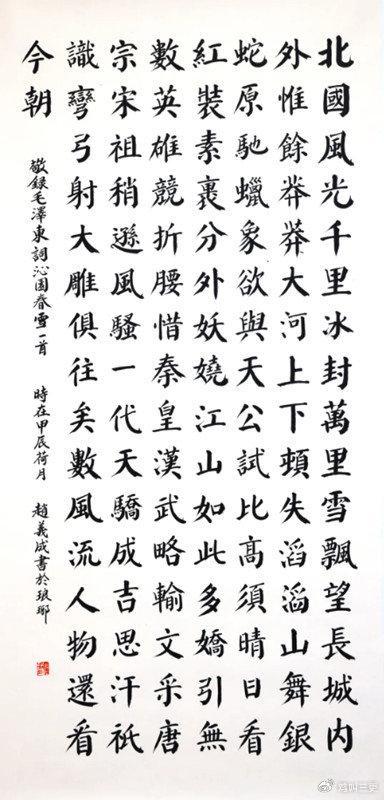 北國風光千里冰封萬里雪飄望長城内
外惟餘莽莽大河上下頓失滔滔山舞銀
蛇原馳蠟象欲與天公試比高須晴日看
紅裝素裹分外妖嬈江山如此多嬌引無
數英雄競折腰惜秦皇漢武略輸文采唐
宗宋祖稍遜風騷一代天驕成吉思汗祇
識彎弓射大雕俱往矣數風流人物還看
今朝
敬録毛澤東詞沁園春雪一首 時在甲辰荷月 趙義成書於琅琊